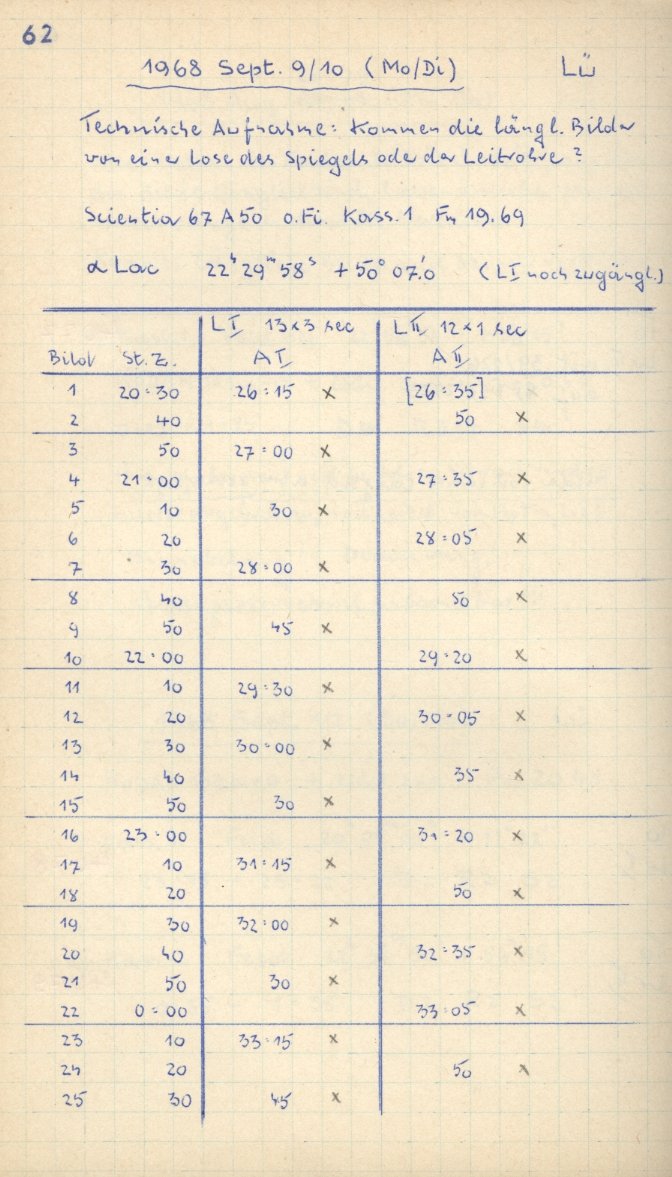 62
1968 Sept. 9/10 (Mo/Di) Lü
Technische Aufnahme: Kommen die längl. Bilder
von einer Lose des Spiegels oder der Leitrohre?
Scientia 67 A 50 o.Fi. Kass. 1 Fn 19.69
α Lac 22ʰ 29ᵐ 58ˢ +50° 07.'0 (L I noch zugängl.)
L I 13×3 sec L II 12×1 sec
Bild St.Z. A I A II
1 20:30 26:15 × [26:35]
2 40 50 ×
3 50 27:00 ×
4 21:00 27:35 ×
5 10 30 ×
6 20 28:05 ×
7 30 28:00 ×
8 40 50 ×
9 50 45 ×
10 22:00 29:20 ×
11 10 29:30 ×
12 20 30:05 ×
13 30 30:00 ×
14 40 35 ×
15 50 30 ×
16 23:00 31:20 ×
17 10 31:15 ×
18 20 50 ×
19 30 32:00 ×
20 40 32:35 ×
21 50 30 ×
22 0:00 33:05 ×
23 10 33:15 ×
24 20 50 ×
25 30 45 ×